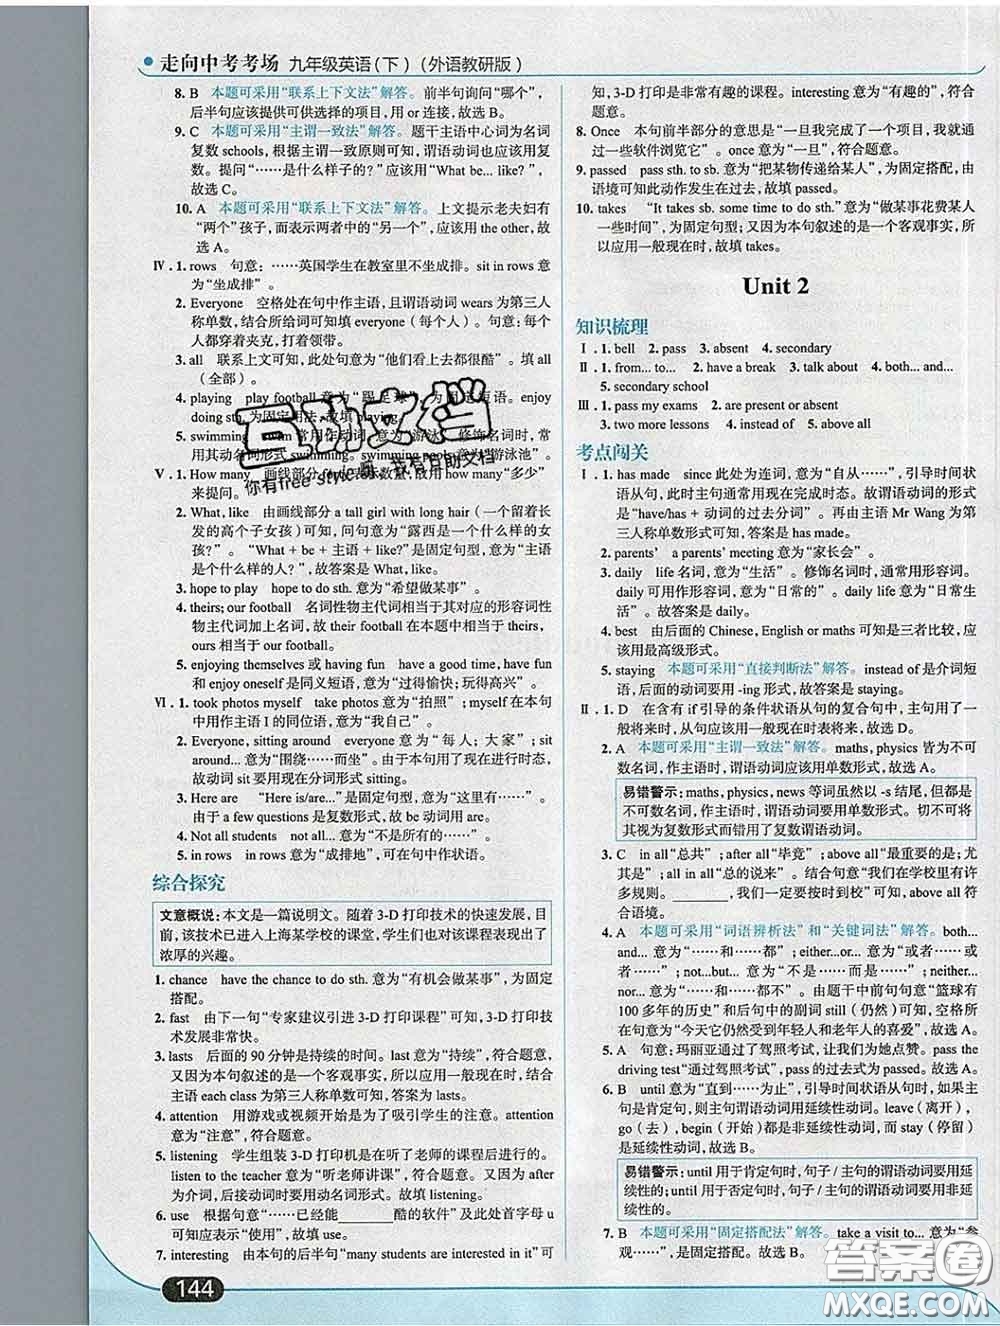 走向中考考场 九年级英语(下)(外语教研版)
8. B 本题可采用“联系上下文法”解答。前半句询问“哪个”，
后半句应该提供可供选择的项目，用 or 连接，故选 B。
9. C 本题可采用“主谓一致法”解答。题干主语中心词为名词
复数 schools，根据主谓一致原则可知，谓语动词也应该用复
数。提问“……是什么样子的？”应该用“What be... like?”，
故选 C。
10. A 本题可采用“联系上下文法”解答。上文提示老夫妇有
“两个”孩子，而表示两者中的“另一个”，应该用 the other，故
选 A。
Ⅳ. 1. rows 句意：……英国学生在教室里不坐成排。sit in rows 意
为“坐成排”。
2. Everyone 空格处在句中作主语，且谓语动词 wears 为第三人
称单数，结合所给词可知填 everyone（每个人）。句意：每个
人都穿着夹克，打着领带。
3. all 联系上文可知，此处句意为“他们看上去都很酷”。填 all
（全部）。
4. playing play football 意为“踢足球”，为固定短语。enjoy
doing sth. 为固定用法，故填 playing。
5. swimming swim 常用作动词，意为“游泳”，修饰名词时，常
用其动名词形式 swimming。swimming pools 意为“游泳池”。
Ⅴ. 1. How many 画线部分表示数量，故用 how many“多少”
来提问。
2. What, like 由画线部分 a tall girl with long hair（一个留着长
发的高个子女孩）可知，问句意为“露西是一个什么样的女
孩？”。“What + be + 主语 + like?”是固定句型，意为“主语
是个什么样的人？”，故答案是 What, like。
3. hope to play hope to do sth. 意为“希望做某事”。
4. theirs; our football 名词性物主代词相当于其对应的形容词性
物主代词加上名词，故 their football 在本题中相当于 theirs，
ours 相当于 our football。
5. enjoying themselves 或 having fun have a good time, have fun
和 enjoy oneself 是同义短语，意为“过得愉快；玩得高兴”。
Ⅵ. 1. took photos myself take photos 意为“拍照”；myself 在本句
中用作主语 I 的同位语，意为“我自己”。
2. Everyone, sitting around everyone 意为“每人；大家”；sit
around... 意为“围绕……而坐”。由于本句用了现在进行时态，
故动词 sit 要用现在分词形式 sitting。
3. Here are “Here is/are...”是固定句型，意为“这里有……”。
由于 a few questions 是复数形式，故 be 动词用 are。
4. Not all students not all... 意为“不是所有的……”。
5. in rows in rows 意为“成排地”，可在句中作状语。
综合探究
文意概说：本文是一篇说明文。随着 3-D 打印技术的快速发展，目
前，该技术已进入上海某学校的课堂，学生们也对该课程表现出了
浓厚的兴趣。
1. chance have the chance to do sth. 意为“有机会做某事”，为固定
搭配。
2. fast 由下一句“专家建议引进 3-D 打印课程”可知，3-D 打印技
术发展非常快。
3. lasts 后面的 90 分钟是持续的时间。last 意为“持续”，符合题意，
又因为本句叙述的是一个客观事实，所以应用一般现在时，结合
主语 each class 为第三人称单数可知，答案为 lasts。
4. attention 用游戏或视频开始是为了吸引学生的注意。attention
意为“注意”，符合题意。
5. listening 学生组装 3-D 打印机是在听了老师的课程后进行的。
listen to the teacher 意为“听老师讲课”，符合题意。又因为 after
为介词，后接动词时要用动名词形式。故填 listening。
6. use 根据句意“……已经能______酷的软件”及此处首字母 u
可知应表示“使用”，故填 use。
7. interesting 由本句的后半句“many students are interested in it”可
144
知，3-D 打印是非常有趣的课程。interesting 意为“有趣的”，符合
题意。
8. Once 本句前半部分的意思是“一旦我完成了一个项目，我就通
过一些软件浏览它”。once 意为“一旦”，符合题意。
9. passed pass sth. to sb. 意为“把某物传递给某人”，为固定搭配，由
语境可知此动作发生在过去，故填 passed。
10. takes “It takes sb. some time to do sth.”意为“做某事花费某人
一些时间”，为固定句型；又因为本句叙述的是一个客观事实，所
以应用一般现在时，故填 takes。
Unit 2
知识梳理
Ⅰ. 1. bell 2. pass 3. absent 4. secondary
Ⅱ. 1. from... to... 2. have a break 3. talk about 4. both... and...
5. secondary school
Ⅲ. 1. pass my exams 2. are present or absent
3. two more lessons 4. instead of 5. above all
考点闯关
Ⅰ. 1. has made since 此处为连词，意为“自从……”，引导时间状
语从句，此时主句通常用现在完成时态。故谓语动词的形式
是“have/has + 动词的过去分词”。再由主语 Mr Wang 为第
三人称单数形式可知，答案是 has made。
2. parents’ a parents’ meeting 意为“家长会”。
3. daily life 名词，意为“生活”。修饰名词时，通常用形容词。
daily 可用作形容词，意为“日常的”。daily life 意为“日常生
活”。故答案是 daily。
4. best 由后面的 Chinese, English or maths 可知是三者比较，应
该用最高级形式。
5. staying 本题可采用“直接判断法”解答。instead of 是介词短
语，后面的动词要用 -ing 形式，故答案是 staying。
Ⅱ. 1. D 在含有 if 引导的条件状语从句的复合句中，主句用了一
般将来时，从句应该用一般现在时表将来，故选 D。
2. A 本题可采用“主谓一致法”解答。maths, physics 皆为不可
数名词，作主语时，谓语动词应该用单数形式，故选 A。
易错警示：maths, physics, news 等词虽然以 -s 结尾，但都是
不可数名词，作主语时，谓语动词要用单数形式。切不可将
其视为复数形式而错用了复数谓语动词。
3. C in all“总共”；after all“毕竟”；above all“最重要的是；尤
其是”；all in all“总的说来”。结合句意“我们在学校里有许
多规则。______，我们一定要按时到校”可知，above all 符
合语境。
4. A 本题可采用“词语辨析法”和“关键词法”解答。both...
and... 意为“……和……都”；either...or... 意为“或者……或
者……”；not...but... 意为“不是……而是……”；neither...
nor... 意为“……和……都不”。由题干中前句句意“篮球有
100 多年的历史”和后句中的副词 still（仍然）可知，空格所
在句意为“今天它仍然受到年轻人和老年人的喜爱”，故选 A。
5. A 句意：玛丽亚通过了驾照考试，让我们为她点赞。pass the
driving test“通过驾照考试”，pass 的过去式为 passed。故选 A。
6. B until 意为“直到……为止”，引导时间状语从句时，如果主
句是肯定句，则主句谓语动词用延续性动词。leave（离开），
go（去），begin（开始）都是非延续性动词，而 stay（停留）
是延续性动词，故选 B。
易错警示：until 用于肯定句时，句子/主句的谓语动词要用延
续性的；until 用于否定句时，句子/主句的谓语动词要用非延
续性的。
7. B 本题可采用“固定搭配法”解答。take a visit to... 意为“参
观……”，是固定搭配。故选 B。
互助文档
你有free style嘛，我有互助文档
答案圈
MXQE.COM